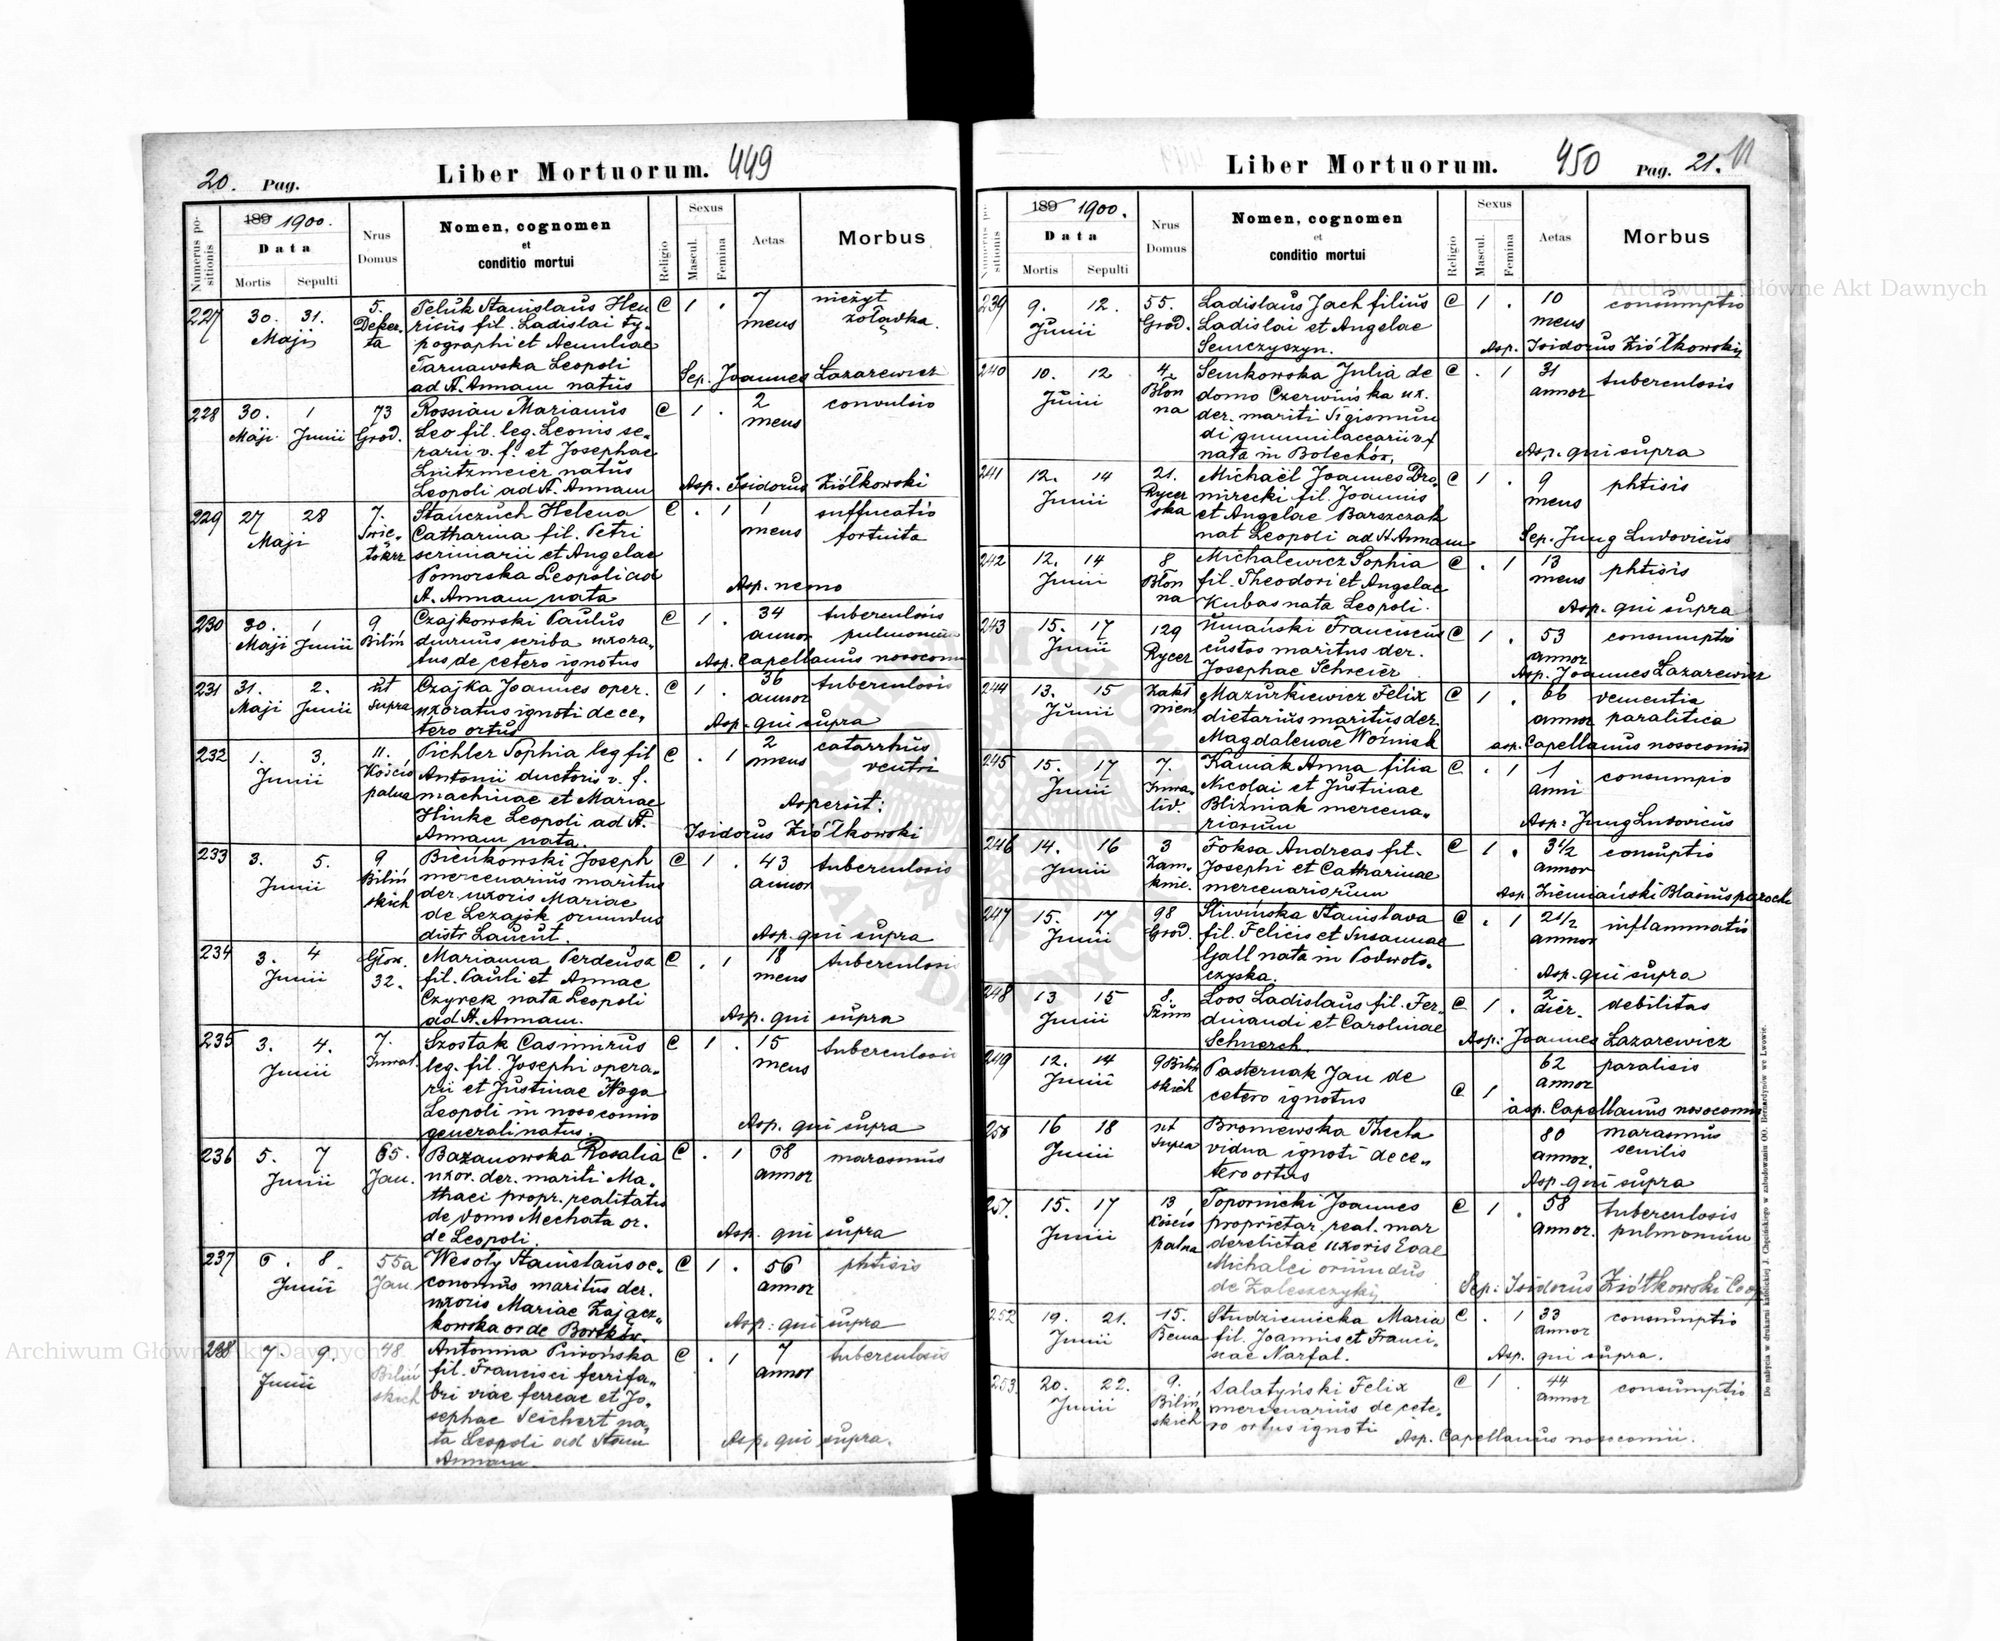 20. Pag.
Liber Mortuorum. 449
Numerus positionis
189 1900.
Data
Mortis Sepulti
Nrus Domus
Nomen, cognomen
et
conditio mortui
Religio
Sexus
Mascul. Femina
Aetas
Morbus
227 30. 31. Maji
Teluk Stanislaus Hen-
ricus fil. Ladislai ty-
pographi et Aemiliae
Tarnawska Leopoli
ad St. Annam natus
C 1 . 7 mens nieżyt
żołądka.
Sep. Joannes Lazarewicz
228 30. Maji 1 Junii 73 Grod.
Rossian Marianus
Leo fil. leg. Leonis se-
rarii v. f. et Josephae
natus
Leopoli ad St. Annam
C 1 . 2 mens convulsio
Asp. Isidorus Ziółkowski
229 27 28 Maji 7.
Stanczuch Helena
Catharina fil. Petri
scriniarii et Angelae
Pomorska Leopoli ad
St. Annam nata
C . 1 1 mens suffucatio
fortuita
Asp. nemo
230 30. Maji 1 Junii 9 Biliń
Czajkowski Paulus
diurnus scriba uxora-
tus de cetero ignotus
C 1 . 34 annor tuberculosis
pulmonum
Asp. Capellanus nosocomii
231 31. Maji 2. Junii ut supra
Czajka Joannes oper.
uxoratus ignoti de ce-
tero ortus
C 1 . 36 annor tuberculosis
Asp. qui supra
232 1. 3. Junii 11. Kościopalna
Pichler Sophia leg fil
Antonii ductoris v. f.
machinae et Mariae
Hinke Leopoli ad St.
Annam nata.
C . 1 2 mens catarrhus
ventri
Aspersit:
Isidorus Ziółkowski
233 3. 5. Junii 9 Biliń
skich
Bieńkowski Joseph
mercenarius maritus
der. uxoris Mariae
de Leżajsk oriundus
distr Łańcut.
C 1 . 43 annor tuberculosis
Asp. qui supra
234 3. 4 Junii Głow. 32.
Marianna Perdeusz
fil. Pauli et Annae
Czyrek nata Leopoli
ad St. Annam.
C . 1 18 mens tuberculosis
Asp. qui supra
235 3. 4. Junii 7. Inwal.
Szostak Casimirus
leg. fil. Josephi opera-
rii et Justinae Woga
Leopoli in nosocomio
generali natus.
C 1 . 15 mens tuberculosis
Asp. qui supra
236 5. 7 Junii 65. Jan.
Bazanowska Rosalia
uxor. der. mariti Ma-
thaei propr. realitatis
de domo Mechata or.
de Leopoli.
C . 1 68 annor marasmus
Asp. qui supra
237 6. 8. Junii 55a Jan.
Wesoły Stanislaus oe-
conomus maritus der.
uxoris Mariae Zającz-
kowska or de Bortków.
C 1 . 56 annor phtisis
Asp: qui supra
238 7. 9. Junii 48. Biliń
skich
Antonina Piwońska
fil. Francisci ferrifa-
bri viae ferreae et Jo-
sephae Teichert na-
ta Leopoli ad Stam
Annam.
C . 1 7 annor tuberculosis
Asp. qui supra.
Liber Mortuorum. 450 Pag. 21. 11
Numerus positionis
189 1900.
Data
Mortis Sepulti
Nrus Domus
Nomen, cognomen
et
conditio mortui
Religio
Sexus
Mascul. Femina
Aetas
Morbus
239 9. 12. Junii 55. Grod.
Ladislaus Jach filius
Ladislai et Angelae
Semczyszyn.
C 1 . 10 mens consumptio
Asp. Isidorus Ziółkowski
240 10. 12 Junii 4 Błon
na
Senkowska Julia de
domo Czerwińska ux.
der. mariti Sigismun
di gummilaccarii v. f
nata in Bolechów.
C . 1 31 annor tuberculosis
Asp. qui supra
241 12. 14 Junii 21. Rycer
ska
Michaël Joannes Dro-
mirecki fil. Joannis
et Angelae Barszczak
nat Leopoli ad St Annam
C 1 . 9 mens phtisis
Sep. Jung Ludovicus
242 12. 14 Junii 8 Błon
na
Michalewicz Sophia
fil. Theodori et Angelae
Kubas nata Leopoli.
C . 1 13 mens phtisis
Asp. qui supra
243 15. 17 Junii 129 Rycer
Umański Franciscus
custos maritus der.
Josephae Schreier
C 1 . 53 annor consumptio
Asp. Joannes Lazarewicz
244 13. 15 Junii
Mazurkiewicz Felix
dietarius maritus der.
Magdalenae Woźniak
C 1 . 66 annor vementia
paralitica
asp. Capellanus nosocomii
245 15. 17 Junii 7. Inwa-
lid.
Kawak Anna filia
Nicolai et Justinae
Bliźniak mercena-
riorum
C . 1 1 anni consumpio
Asp: Jung Ludovicus
246 14. 16 Junii 3 Zam-
knie.
Foksa Andreas fil.
Josephi et Catharinae
mercenariorum
C 1 . 3 1/2 annor consuptio
Asp. Ziemiański Blasius parochi
247 15. 17 Junii 98 Grod.
Śliwińska Stanislava
fil. Felicis et Susannae
Gall nata in Podwoło-
czyska.
C . 1 2 1/2 annor inflammatio
Asp. qui supra
248 13 15 Junii 8.
Loos Ladislaus fil. Fer-
dinandi et Carolinae
Schnerch.
C 1 . 2 dier. debilitas
Asp: Joannes Lazarewicz
249 12. 14 Junii 9 Biliń
skich
Pasternak Jan de
cetero ignotus
C 1 62 annor paralisis
asp. Capellanus nosocomii
250 16 18 Junii ut supra
Broniewska Thecla
vidua ignoti de ce-
tero ortus
80 annor. marasmus
senilis
Asp. qui supra
251. 15. 17 Junii 13 Kościo
palna
Topornicki Joannes
proprietar. real. mar
derelictae uxoris Evae
Michalci oriundus
de Zaleszczyki
C 1 . 58 annor. tuberculosis
pulmonum
Sep: Isidorus Ziółkowski Coop
252 19. 21. Junii 15. Bema
Studzienicka Maria
fil. Joannis et Franci-
scae Narfal.
C . 1 33 annor consumptio
Asp. qui supra.
253 20. 22. Junii 9. Biliń
skich
Salatyński Felix
mercenarius de cete-
ro ortus ignoti
C 1 . 44 annor consumptio
Asp. Capellanus nosocomii.
Do nabycia w drukarni katolickiej J. Chęcińskiego w zabudowaniu OO. Bernardynów we Lwowie.
Archiwum Główne Akt Dawnych
Archiwum Główne Akt Dawnych
ARCHIWUM GŁÓWNE AKT DAWNYCH